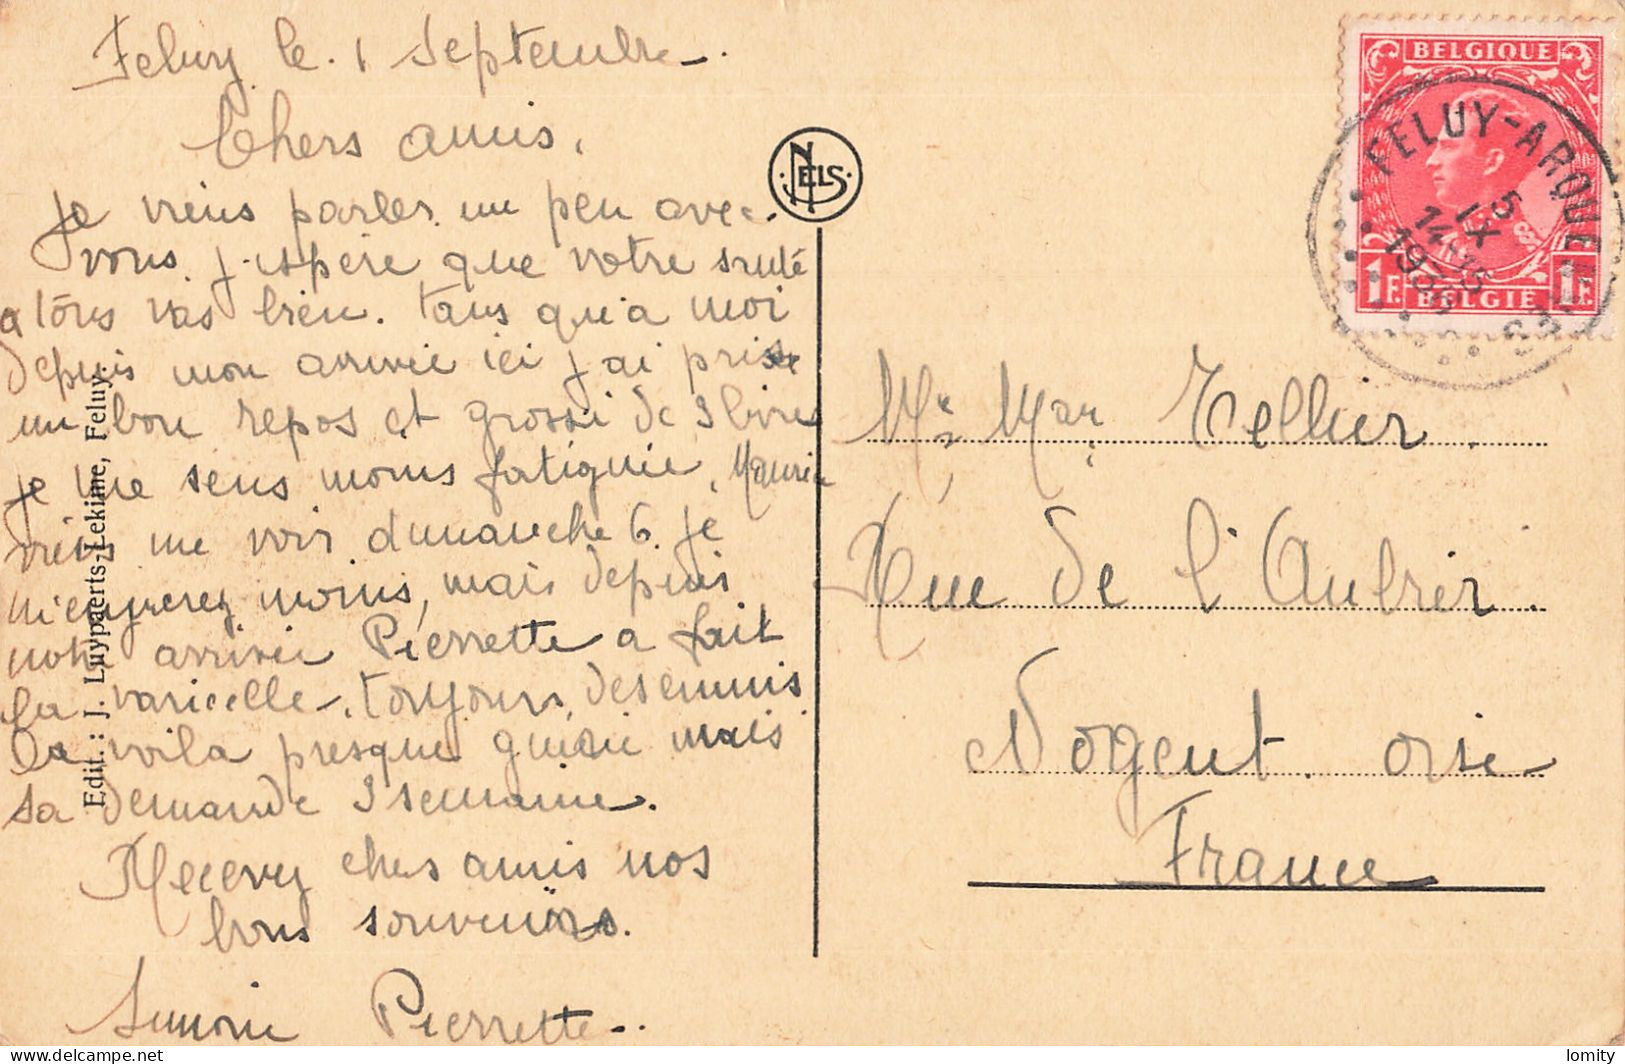 Feluy le. 1 Septembre.
Chers amis.
Je viens parler un peu avec
vous. j'espère que votre santé
a tous vas bien. tans qu'a moi
depuis mon arrivée ici j'ai pris
un bon repos et grossi de 3 livres
je me sens moins fatiguée, Maurice
viens me voir dimanche 6. je
m'ennuierez moins, mais depuis
notre arrivée Pierrette a fait
la varicelle, toujours des ennuis
la voila presque guérie mais
sa demande 3 semaine.
Recevez chers amis nos
bons souvenirs.
Simone Pierrette..
Edit. : J. Luypaerts-Lekime, Feluy.
NELS
BELGIQUE
1F. BELGIE 1F.
FELUY-ARQUE
5
IX
14 15
193
Mr Mar Tellier.
Rue de l'Aubrier.
Nogent. oise
France
lomity